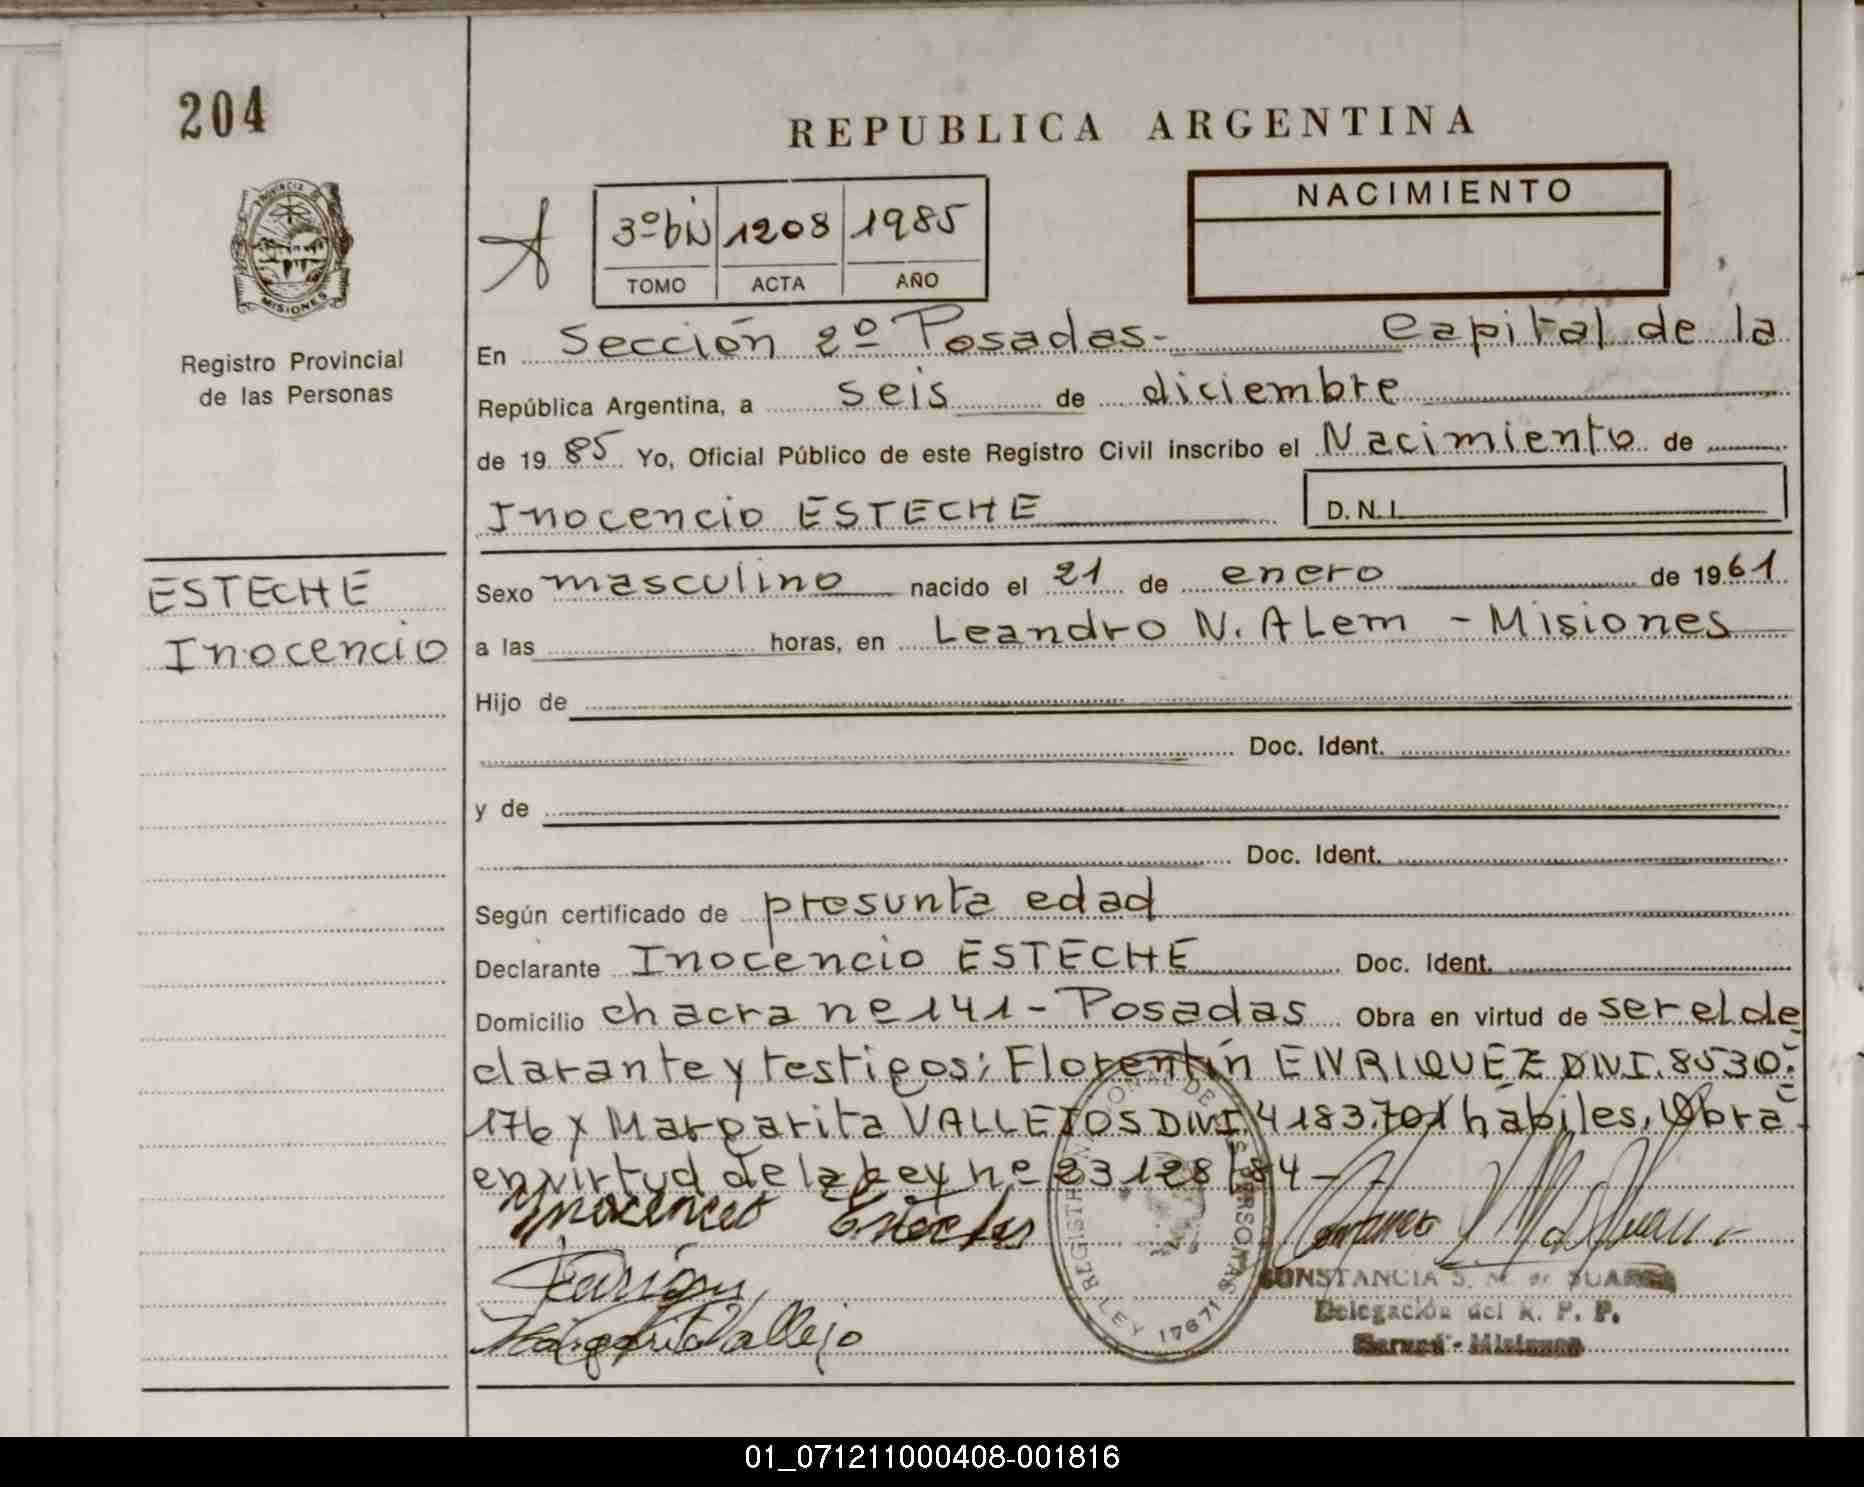 204
REPUBLICA ARGENTINA
PROVINCIA DE
MISIONES
Registro Provincial
de las Personas
3º bis 1208 1985
TOMO ACTA AÑO
NACIMIENTO
En Sección 2º Posadas- Capital de la
República Argentina, a seis de diciembre
de 1985 Yo, Oficial Público de este Registro Civil inscribo el Nacimiento de
Inocencio ESTECHE D.N.I.
ESTECHE
Inocencio
Sexo masculino nacido el 21 de enero de 1961
a las horas, en Leandro N. Alem - Misiones
Hijo de
Doc. Ident.
y de
Doc. Ident.
Según certificado de presunta edad
Declarante Inocencio ESTECHE Doc. Ident.
Domicilio chacra nº 141 - Posadas Obra en virtud de ser el de
clarante y testigos: Florentín ENRIQUEZ DNI. 8530.
176 y Margarita VALLEJOS DNI. 4183.701 hábiles. Obra
en virtud de la Ley nº 23128/84 -
Inocencio Esteche
Margarita Vallejo
LEY 17671
CONSTANCIA S. M. de SUAREZ
Delegación del R. P. P.
01_071211000408-001816